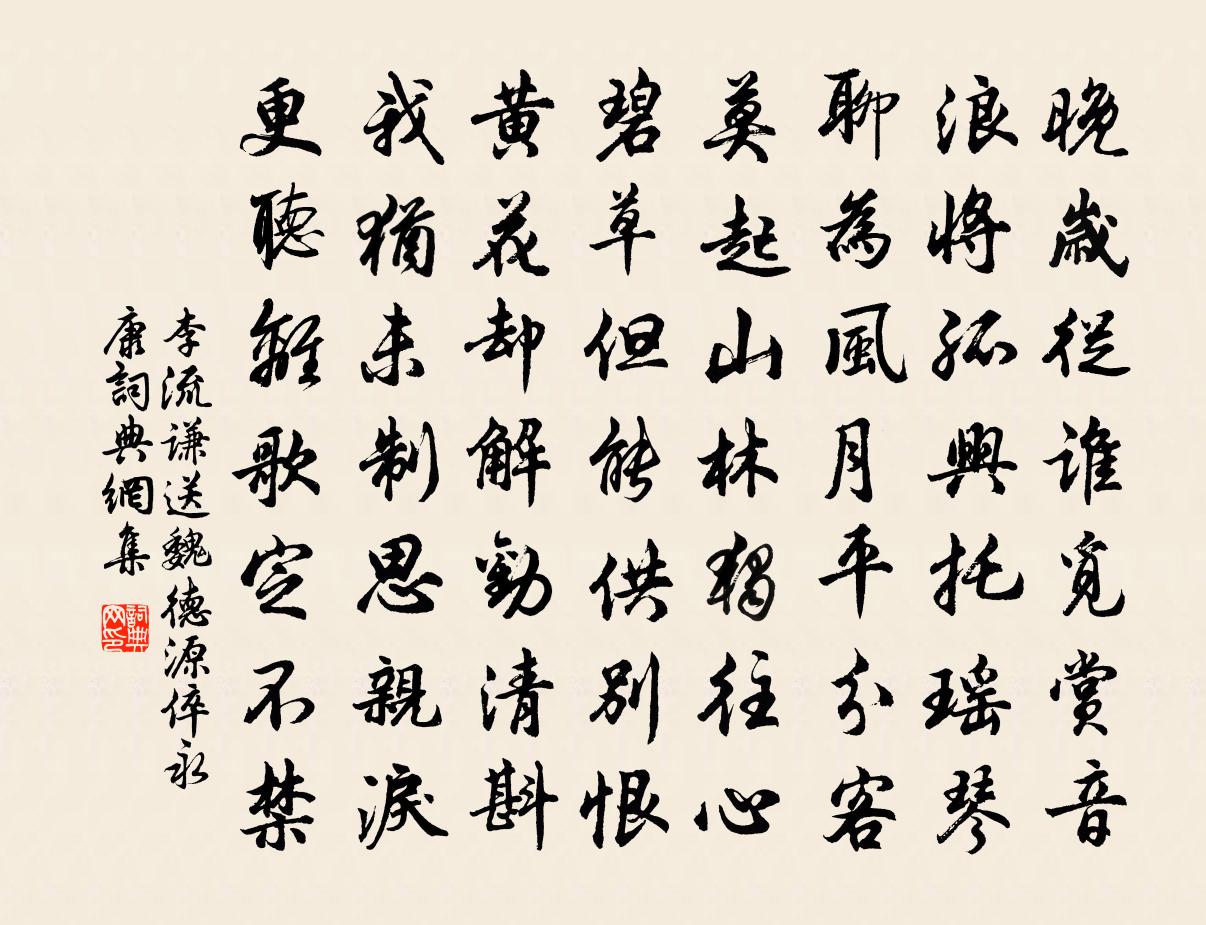 晚歲從誰覓賞音
浪將孤興托瑤琴
聊為風月平分客
莫起山林獨往心
碧草但能供別恨
黃花却解勸清斟
我猶未制思親淚
更聽離歌定不禁
李流谦送魏德源倅永
康詞典網集
詞典
网印